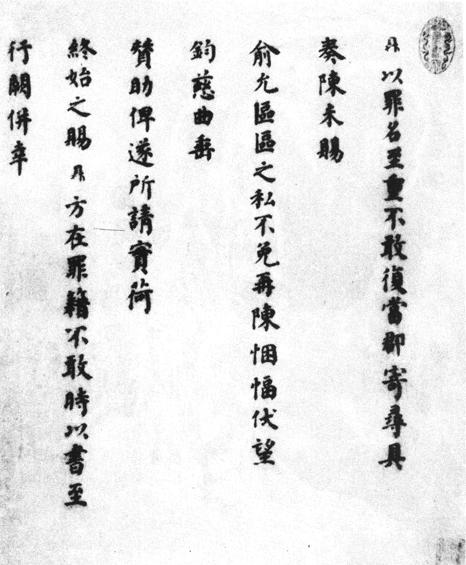 鼎以罪名至重不敢復當郡寄尋具
奏陳未賜
俞允區區之私不免再陳悃愊伏望
鈞慈曲垂
贊助俾遂所請實荷
終始之賜鼎方在罪籍不敢時以書至
行闕併幸